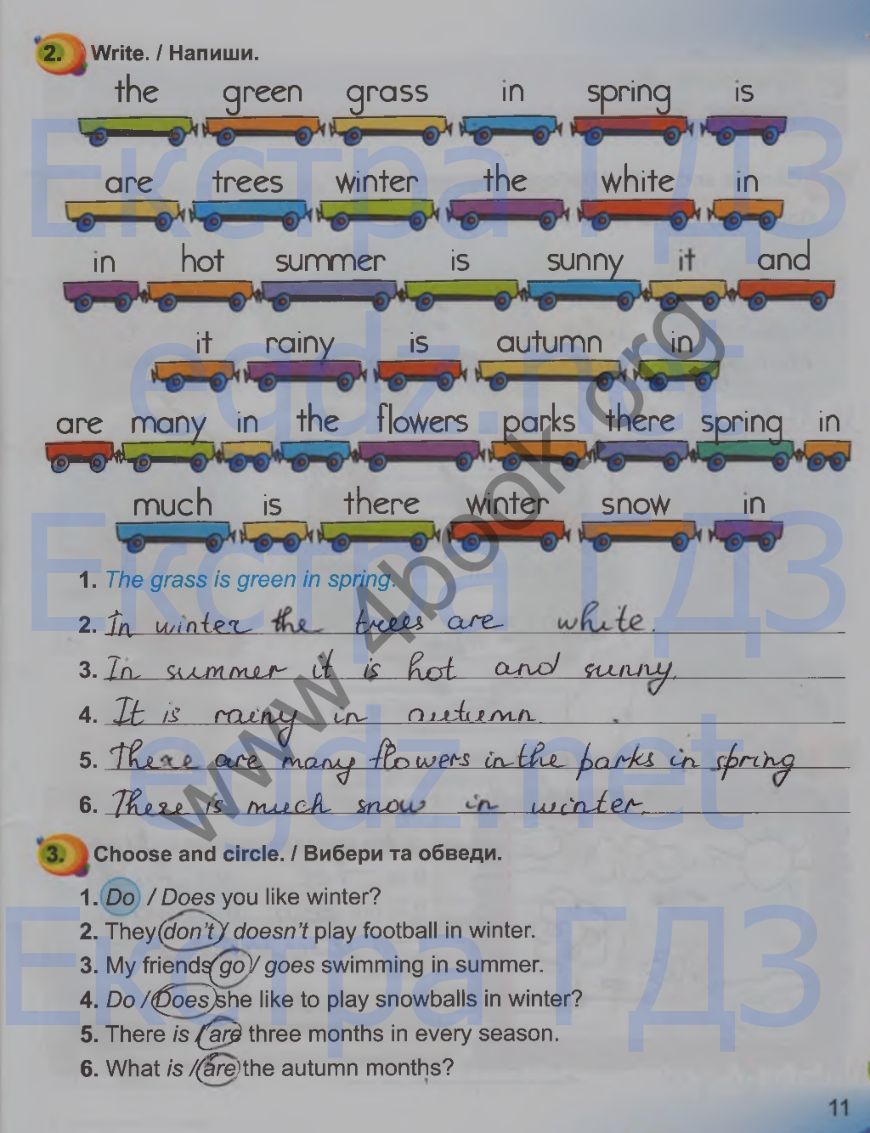 2. Write. / Напиши.
the green grass in spring is
are trees winter the white in
in hot summer is sunny it and
it rainy is autumn in
are many in the flowers parks there spring in
much is there winter snow in
1. The grass is green in spring.
2. In winter the trees are white.
3. In summer it is hot and sunny.
4. It is rainy in autumn.
5. There are many flowers in the parks in spring
6. There is much snow in winter.
3. Choose and circle. / Вибери та обведи.
1. Do / Does you like winter?
2. They don't / doesn't play football in winter.
3. My friends go / goes swimming in summer.
4. Do / Does she like to play snowballs in winter?
5. There is / are three months in every season.
6. What is / are the autumn months?
11
Екстра ГДЗ
egdz.net
Екстра ГДЗ
egdz.net
Екстра ГДЗ
www.4book.org